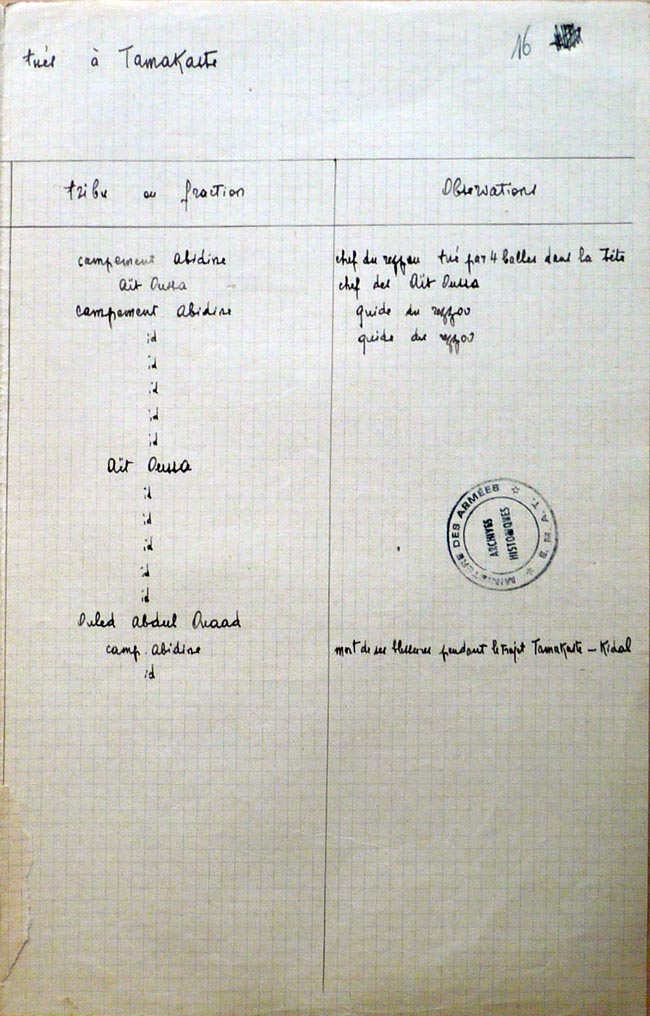 16
tués à Tamakaste
tribu ou fraction Observations
campement Abidine chef du rezzou tué par 4 balles dans la Tête
Aït Oussa chef des Aït Oussa
campement Abidine guide du rezzou
id guide du rezzou
id
id
id
id
Aït Oussa
id
id
id
id
id
Ouled Abdul Ouaad
camp. Abidine mort de ses blessures pendant le trajet Tamakaste – Kidal
id
MINISTERE DES ARMÉES ☆ E. M. A. T. ☆
ARCHIVES
HISTORIQUES